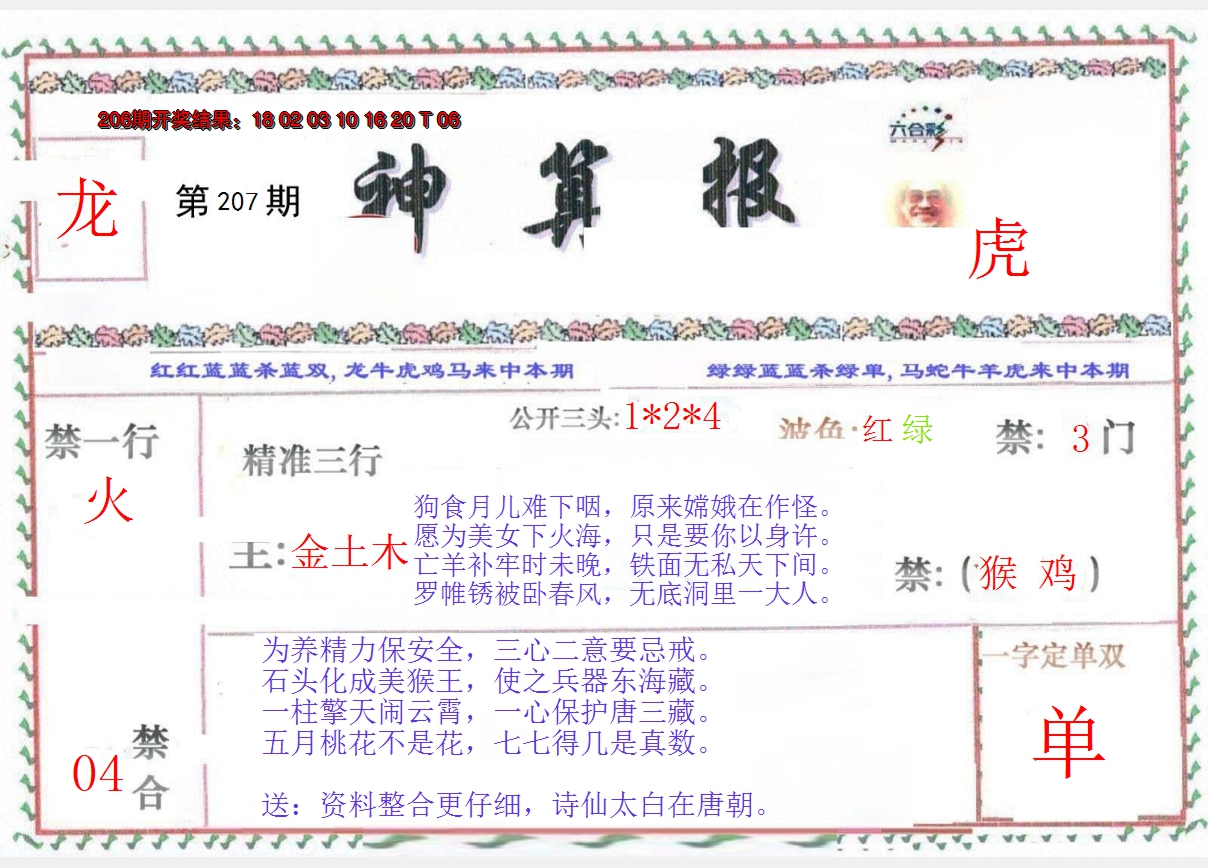 206期开奖结果：18 02 03 10 16 20 T 06
六合彩
龙
第 207 期
神算报
虎
红红蓝蓝杀蓝双,龙牛虎鸡马来中本期
绿绿蓝蓝杀绿单,马蛇牛羊虎来中本期
公开三头:1*2*4
波色:红 绿
禁一行
火
精准三行
禁: 3 门
狗食月儿难下咽，原来嫦娥在作怪。
愿为美女下火海，只是要你以身许。
王:金土木
亡羊补牢时未晚，铁面无私天下间。
罗帷锈被卧春风，无底洞里一大人。
禁:(猴 鸡)
为养精力保安全，三心二意要忌戒。
石头化成美猴王，使之兵器东海藏。
一柱擎天闹云霄，一心保护唐三藏。
五月桃花不是花，七七得几是真数。
送：资料整合更仔细，诗仙太白在唐朝。
04
禁合
一字定单双
单